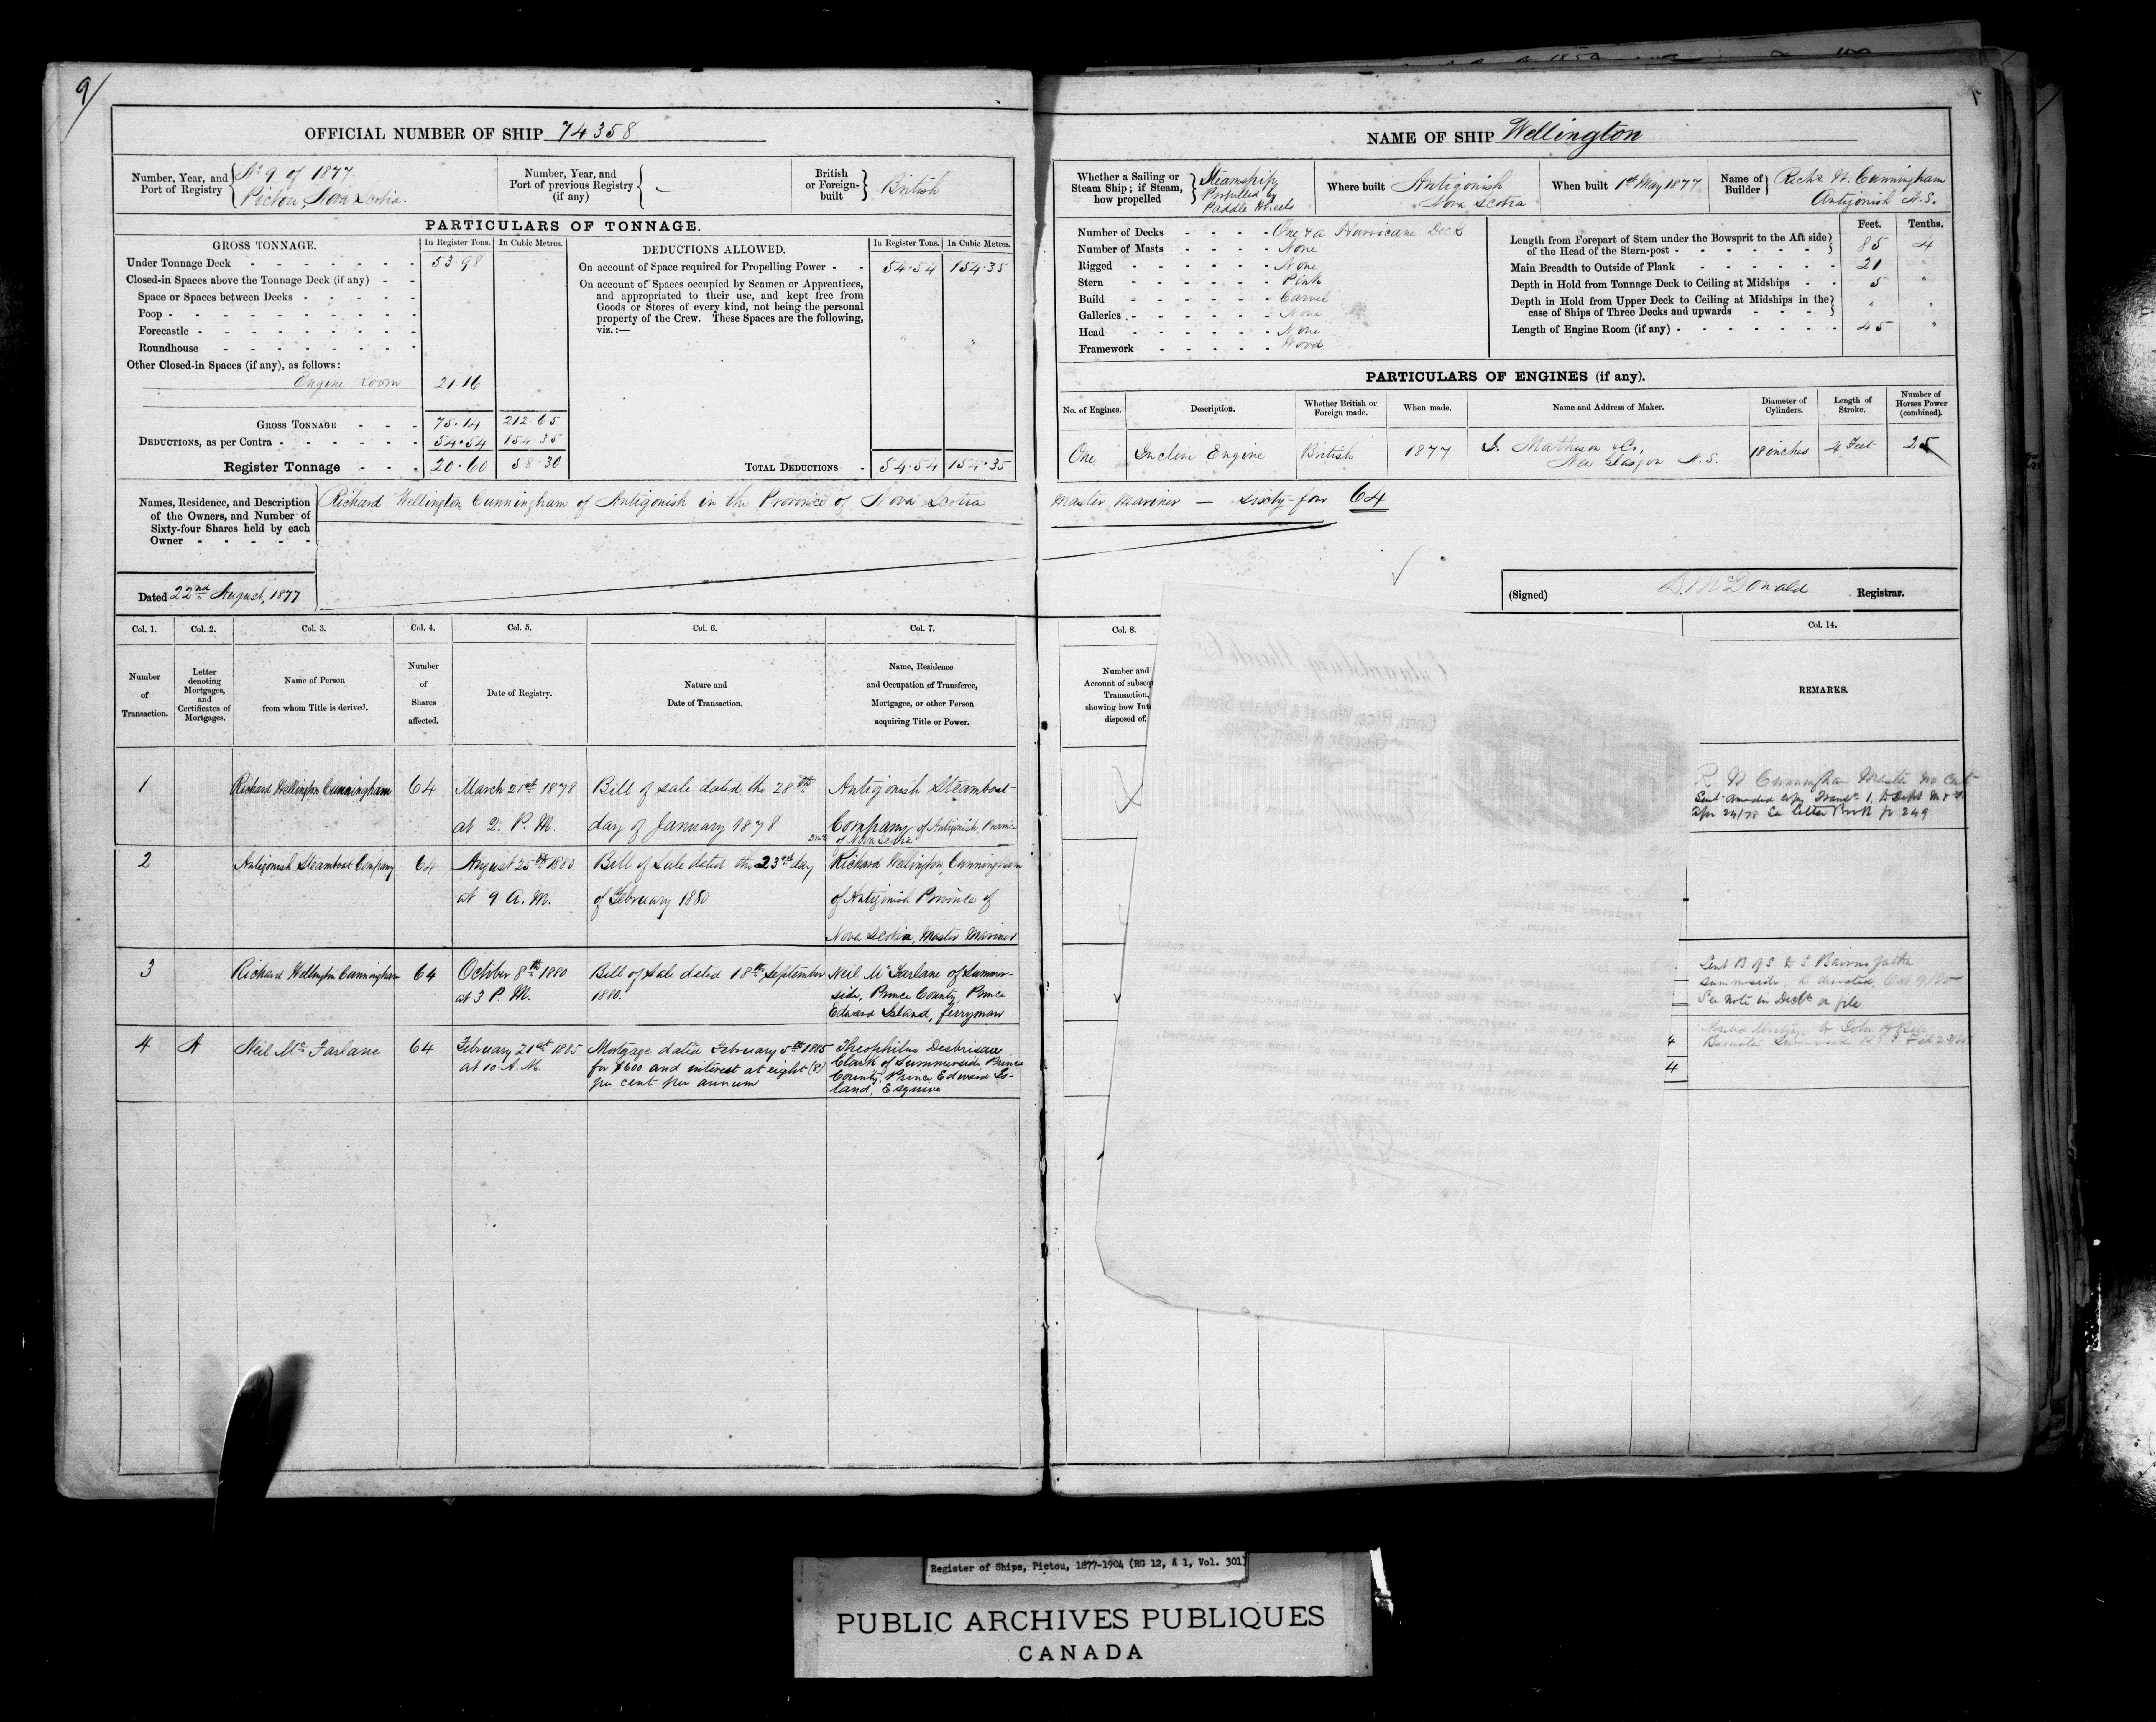 9/
OFFICIAL NUMBER OF SHIP 74358
Number, Year, and Port of Registry { No 9 of 1877
Pictou, Nova Scotia.
Number, Year, and Port of previous Registry (if any) { —
British or Foreign-built } British
PARTICULARS OF TONNAGE.
GROSS TONNAGE. In Register Tons. In Cubic Metres.
Under Tonnage Deck 53.98
Closed-in Spaces above the Tonnage Deck (if any)
Space or Spaces between Decks
Poop
Forecastle
Roundhouse
Other Closed-in Spaces (if any), as follows:
Engine Room 21.16
GROSS TONNAGE 75.14 212.65
DEDUCTIONS, as per Contra 54.54 154.35
Register Tonnage 20.60 58.30
DEDUCTIONS ALLOWED. In Register Tons. In Cubic Metres.
On account of Space required for Propelling Power 54.54 154.35
On account of Spaces occupied by Seamen or Apprentices,
and appropriated to their use, and kept free from
Goods or Stores of every kind, not being the personal
property of the Crew. These Spaces are the following,
viz.:—
" "
TOTAL DEDUCTIONS 54.54 154.35
NAME OF SHIP Wellington
Whether a Sailing or Steam Ship; if Steam, how propelled } Steamship
Propelled by
Paddle Wheels
Where built Antigonish
Nova Scotia
When built 1st May 1877
Name of Builder } Richd W. Cunningham
Antigonish N.S.
Number of Decks One & a Hurricane Deck
Number of Masts None
Rigged None
Stern Pink
Build Carvel
Galleries None
Head None
Framework Wood
Feet. Tenths.
Length from Forepart of Stem under the Bowsprit to the Aft side
of the Head of the Stern-post 85 4
Main Breadth to Outside of Plank 21 "
Depth in Hold from Tonnage Deck to Ceiling at Midships 5 "
Depth in Hold from Upper Deck to Ceiling at Midships in the
case of Ships of Three Decks and upwards " "
Length of Engine Room (if any) 45 "
PARTICULARS OF ENGINES (if any).
No. of Engines. Description. Whether British or Foreign made. When made. Name and Address of Maker. Diameter of Cylinders. Length of Stroke. Number of Horses Power (combined).
One Incline Engine British 1877 I. Matheson & Co, 18 inches 4 Feet 25
New Glasgow N.S.
Names, Residence, and Description
of the Owners, and Number of
Sixty-four Shares held by each
Owner
Richard Wellington Cunningham of Antigonish in the Province of Nova Scotia Master Mariner — Sixty-four 64
Dated 22nd August, 1877
(Signed) D. McDonald Registrar.
Col. 1. Col. 2. Col. 3. Col. 4. Col. 5. Col. 6. Col. 7. Col. 8. Col. 14.
Number of Transaction.
Letter denoting Mortgages, and Certificates of Mortgages.
Name of Person from whom Title is derived.
Number of Shares affected.
Date of Registry.
Nature and Date of Transaction.
Name, Residence and Occupation of Transferee, Mortgagee, or other Person acquiring Title or Power.
Number and
Account of
Transaction,
showing how
disposed of.
REMARKS.
1 Richard Wellington Cunningham 64 March 21st 1878 Bill of Sale dated the 28th Antigonish Steamboat
at 2. P.M. day of January 1878 Company of Antigonish, Province
of Nova Scotia
R. W Cunningham Master no Cert
Sent amended copy Trans 1, to Dept M & F
Apr 24/78 See letter Book p 249
2 Antigonish Steamboat Company 64 August 25th 1880 Bill of Sale dated the 23rd day Richard Wellington Cunningham
at 9 A.M. of February 1880 of Antigonish Province of
Nova Scotia, Master Mariner
3 Richard Wellington Cunningham 64 October 8th 1880 Bill of Sale dated 18th September Neil McFarlane of Summer-
at 3 P.M. 1880. side, Prince County, Prince
Edward Island, ferryman
Sent B of S to
Summerside, as directed, Oct 9/80
See note on file
4 A Neil McFarlane 64 February 21st 1885 Mortgage dated February 5th 1885 Theophilus Desbrisay
at 10 A.M. for $600 and interest at eight (8) Clark of Summerside, Prince
per cent per annum County, Prince Edward Is-
land, Esquire
Corn, Rice, Wheat & Potato Starch
Glucose & Corn Syrup.
Registrar of Shipping,
Pictou, N. S.
Dear Sir:
Yours truly,
Registrar
Register of Ships, Pictou, 1877-1904 (RG 12, A 1, Vol. 301)
PUBLIC ARCHIVES PUBLIQUES
CANADA